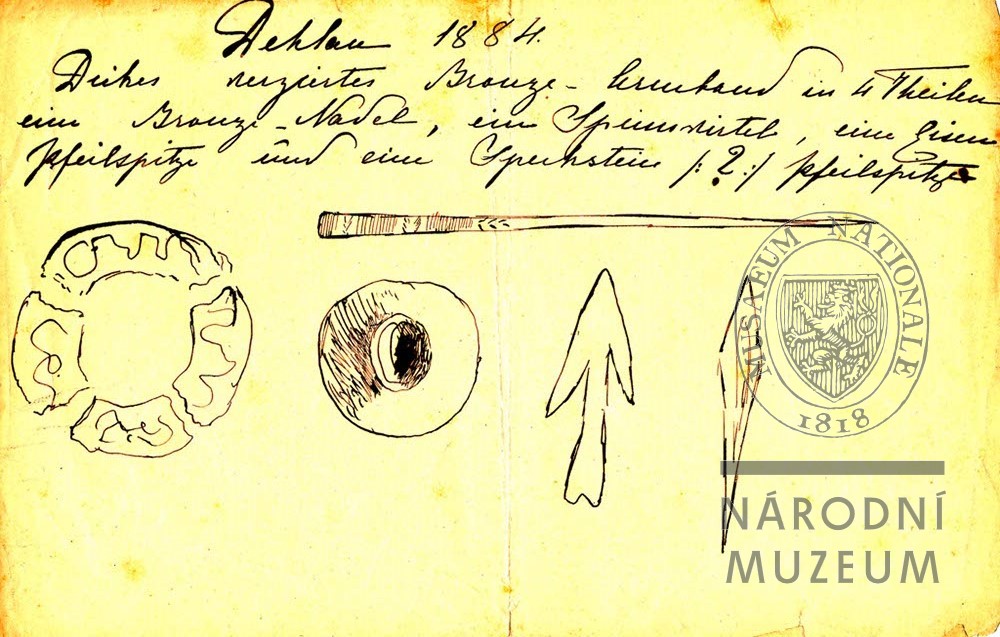 Dehlau 1884.
Dickes verziertes Bronze-Armband in 4 Theilen
eine Bronze-Nadel, ein Spinnwirtel, eine Eisen
Pfeilspitze und eine Speckstein /:?:/ Pfeilspitze
MUSAEUM NATIONALE
1818
NÁRODNÍ
MUZEUM